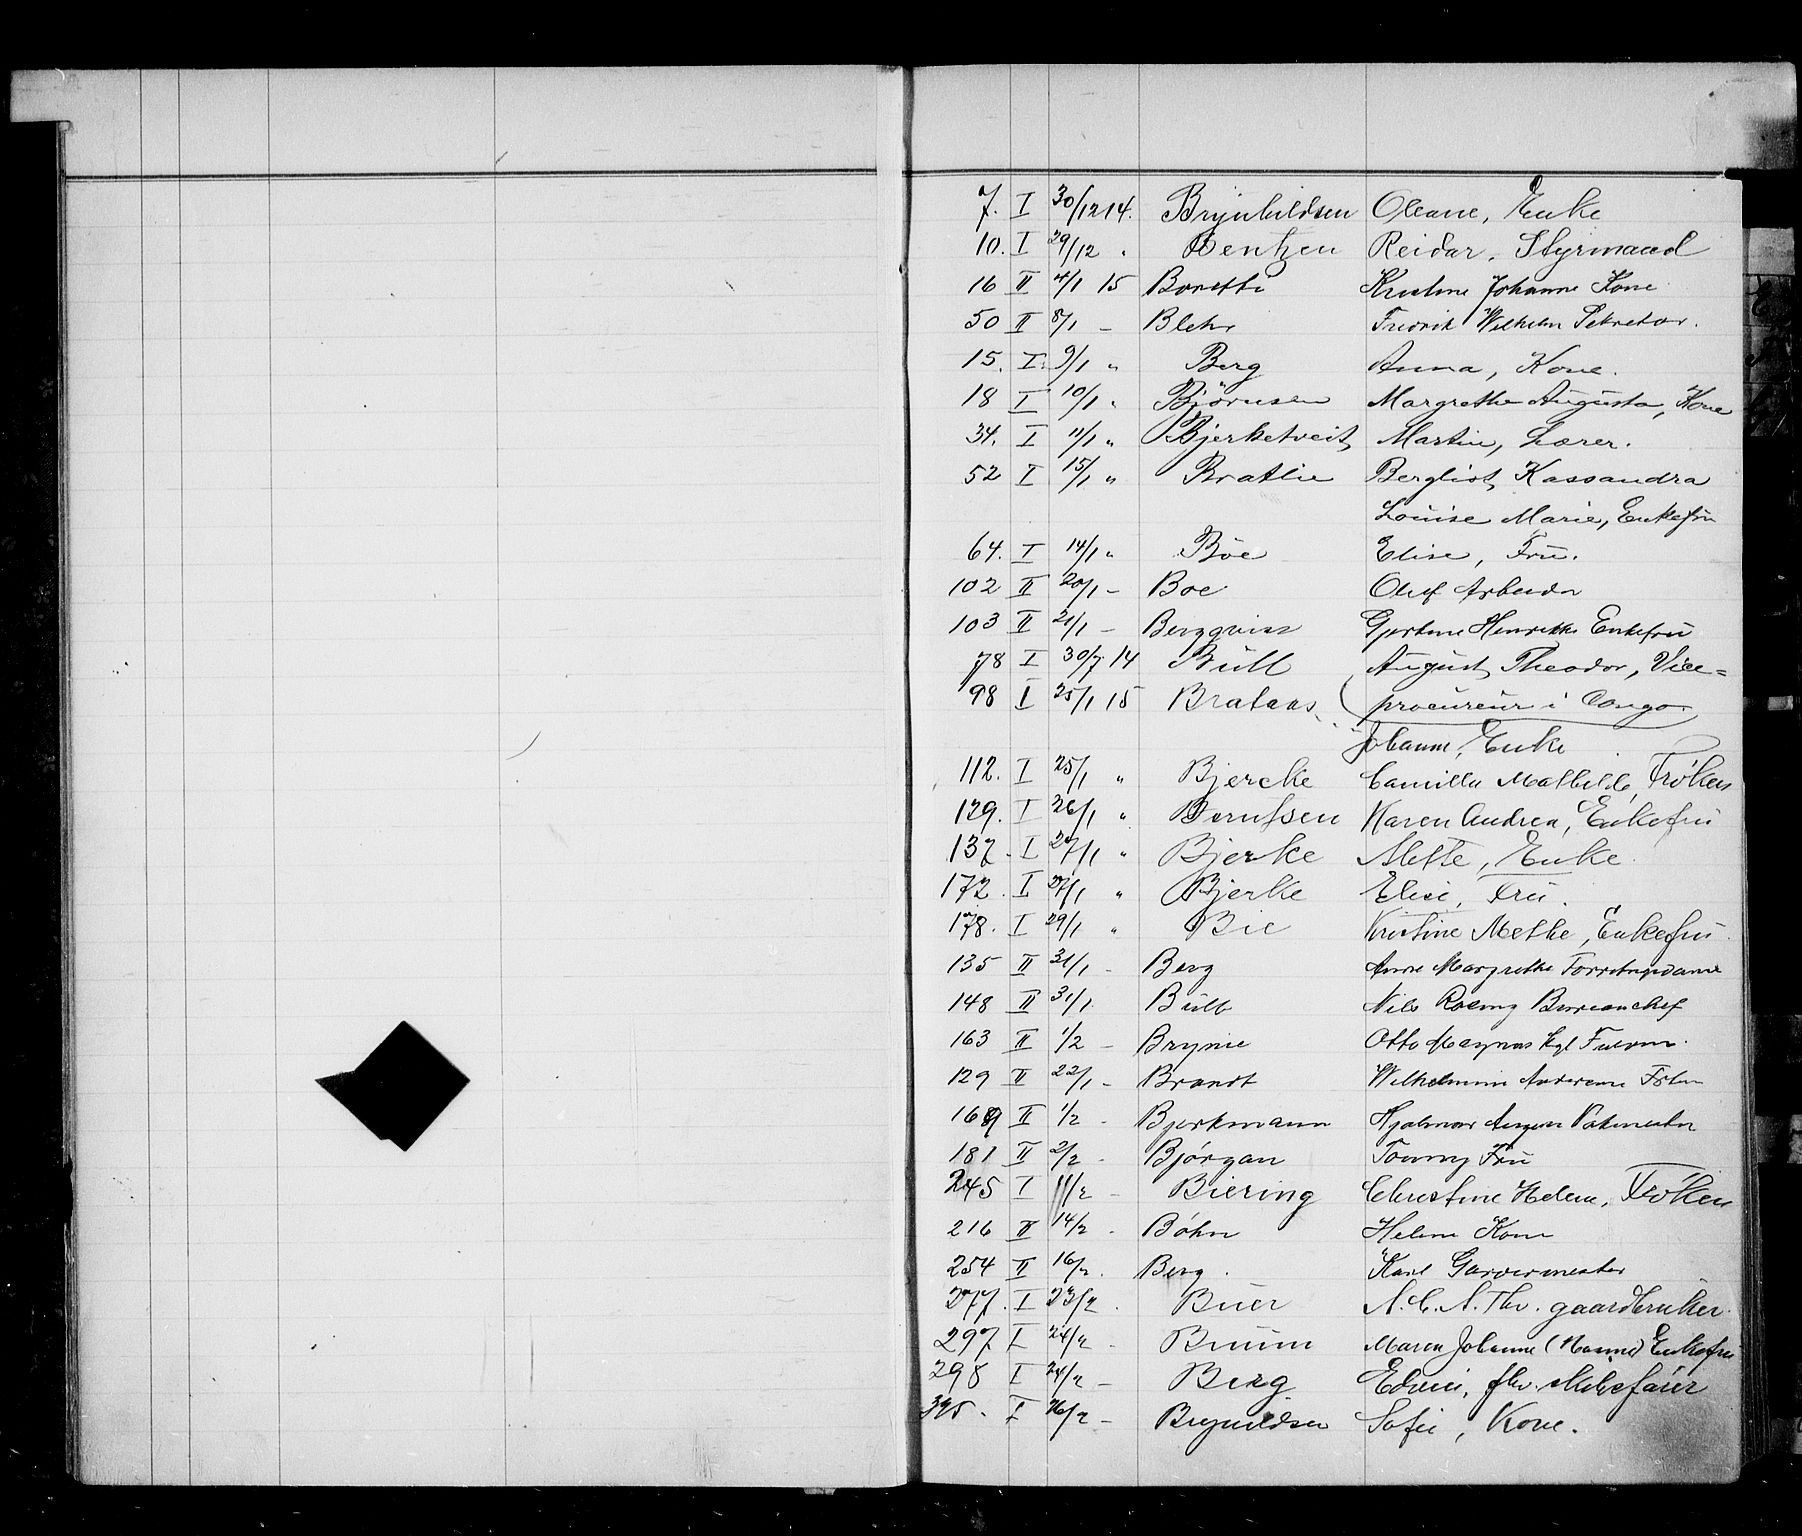 7. I 30/12 14. Brynhildsen Oleane, Enke
10. I 29/12 " Bentzen Reidar, Styrmand
16 II 4/1 15 Boretti Kristine Johanne Kone
50 II 8/1 - Blehr Fredrik Wilhelm Sekretær.
15. I. 9/1 " Berg Anna, Kone.
18 I 10/1 " Bjørnsen Margrethe Augusta, Kone
34. I 11/1 " Bjerketveit Martin, Lærer.
52 I 15/1 " Bratlie Bergliot Kassandra
Louise Marie, Enkefru
64. I 14/1 " Böe Elise, Fru.
102 II 20/1 - Boe Oluf Arbeider
103 II 21/1 - Bergqvist Gjertine Henrikke Enkefru
78 I 30/7 14 Bull August Theodor, Vice=
98 I 25/1 15 Brataas (procureur i Congo
Johanne, Enke
112. I 25/1 " Bjercke Camilla Mathilde, Frøken
129. I 26/1 " Berntsen Karen Andrea, Enkefru
137. I 27/1 " Bjerke Alette, Enke.
172. I 27/1 " Bjerke Elise, Fru.
178. I 29/1 " Bie Kristine Methe, Enkefru.
135 II 31/1 - Berg Anne Margrethe
148 II 31/1. Bull Nils Roering Bureauchef
163 II 1/2 - Brynie Otto Magnus Kgl
129 II 22/1 - Brandt Wilhelmine
169 II 1/2 - Bjerkmann Hjalmar
181 II 2/2 - Bjørgan Tommy Fru
245 I 11/2 - Biering Christine Helene, Frøken
216 II 14/2 - Bøhn Helene Kone
254 II 16/2. Berg. Karl Garvermester
277. I 23/2. Buer N. C. A. Thv. gaardbruker.
297 I 24/2. Bruun Maren Johanne (Hanne) Enkefru
298 I 24/2 - Berg Edvin, fhv. skibsfører
395. I 26/2 - Brynildsen Sofie, Kone.